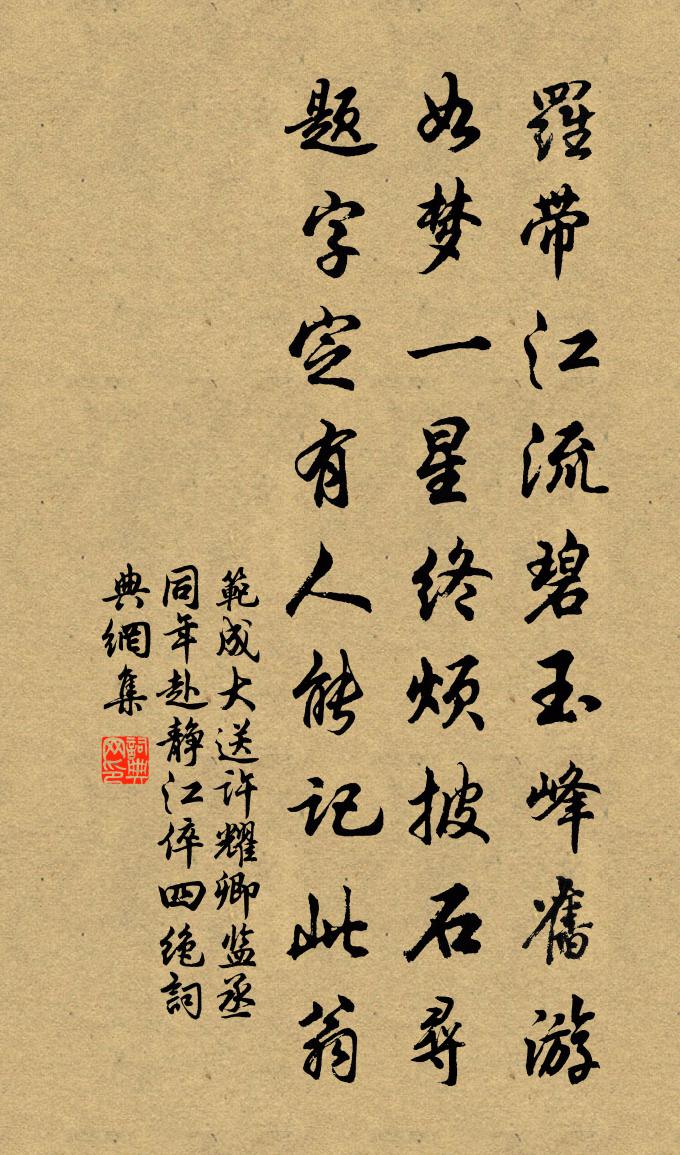 羅帶江流碧玉峰舊游
如梦一星终烦披石尋
题字定有人能记此翁
範成大送许耀卿监丞
同年赴静江倅四绝詞
典網集
詞典网印